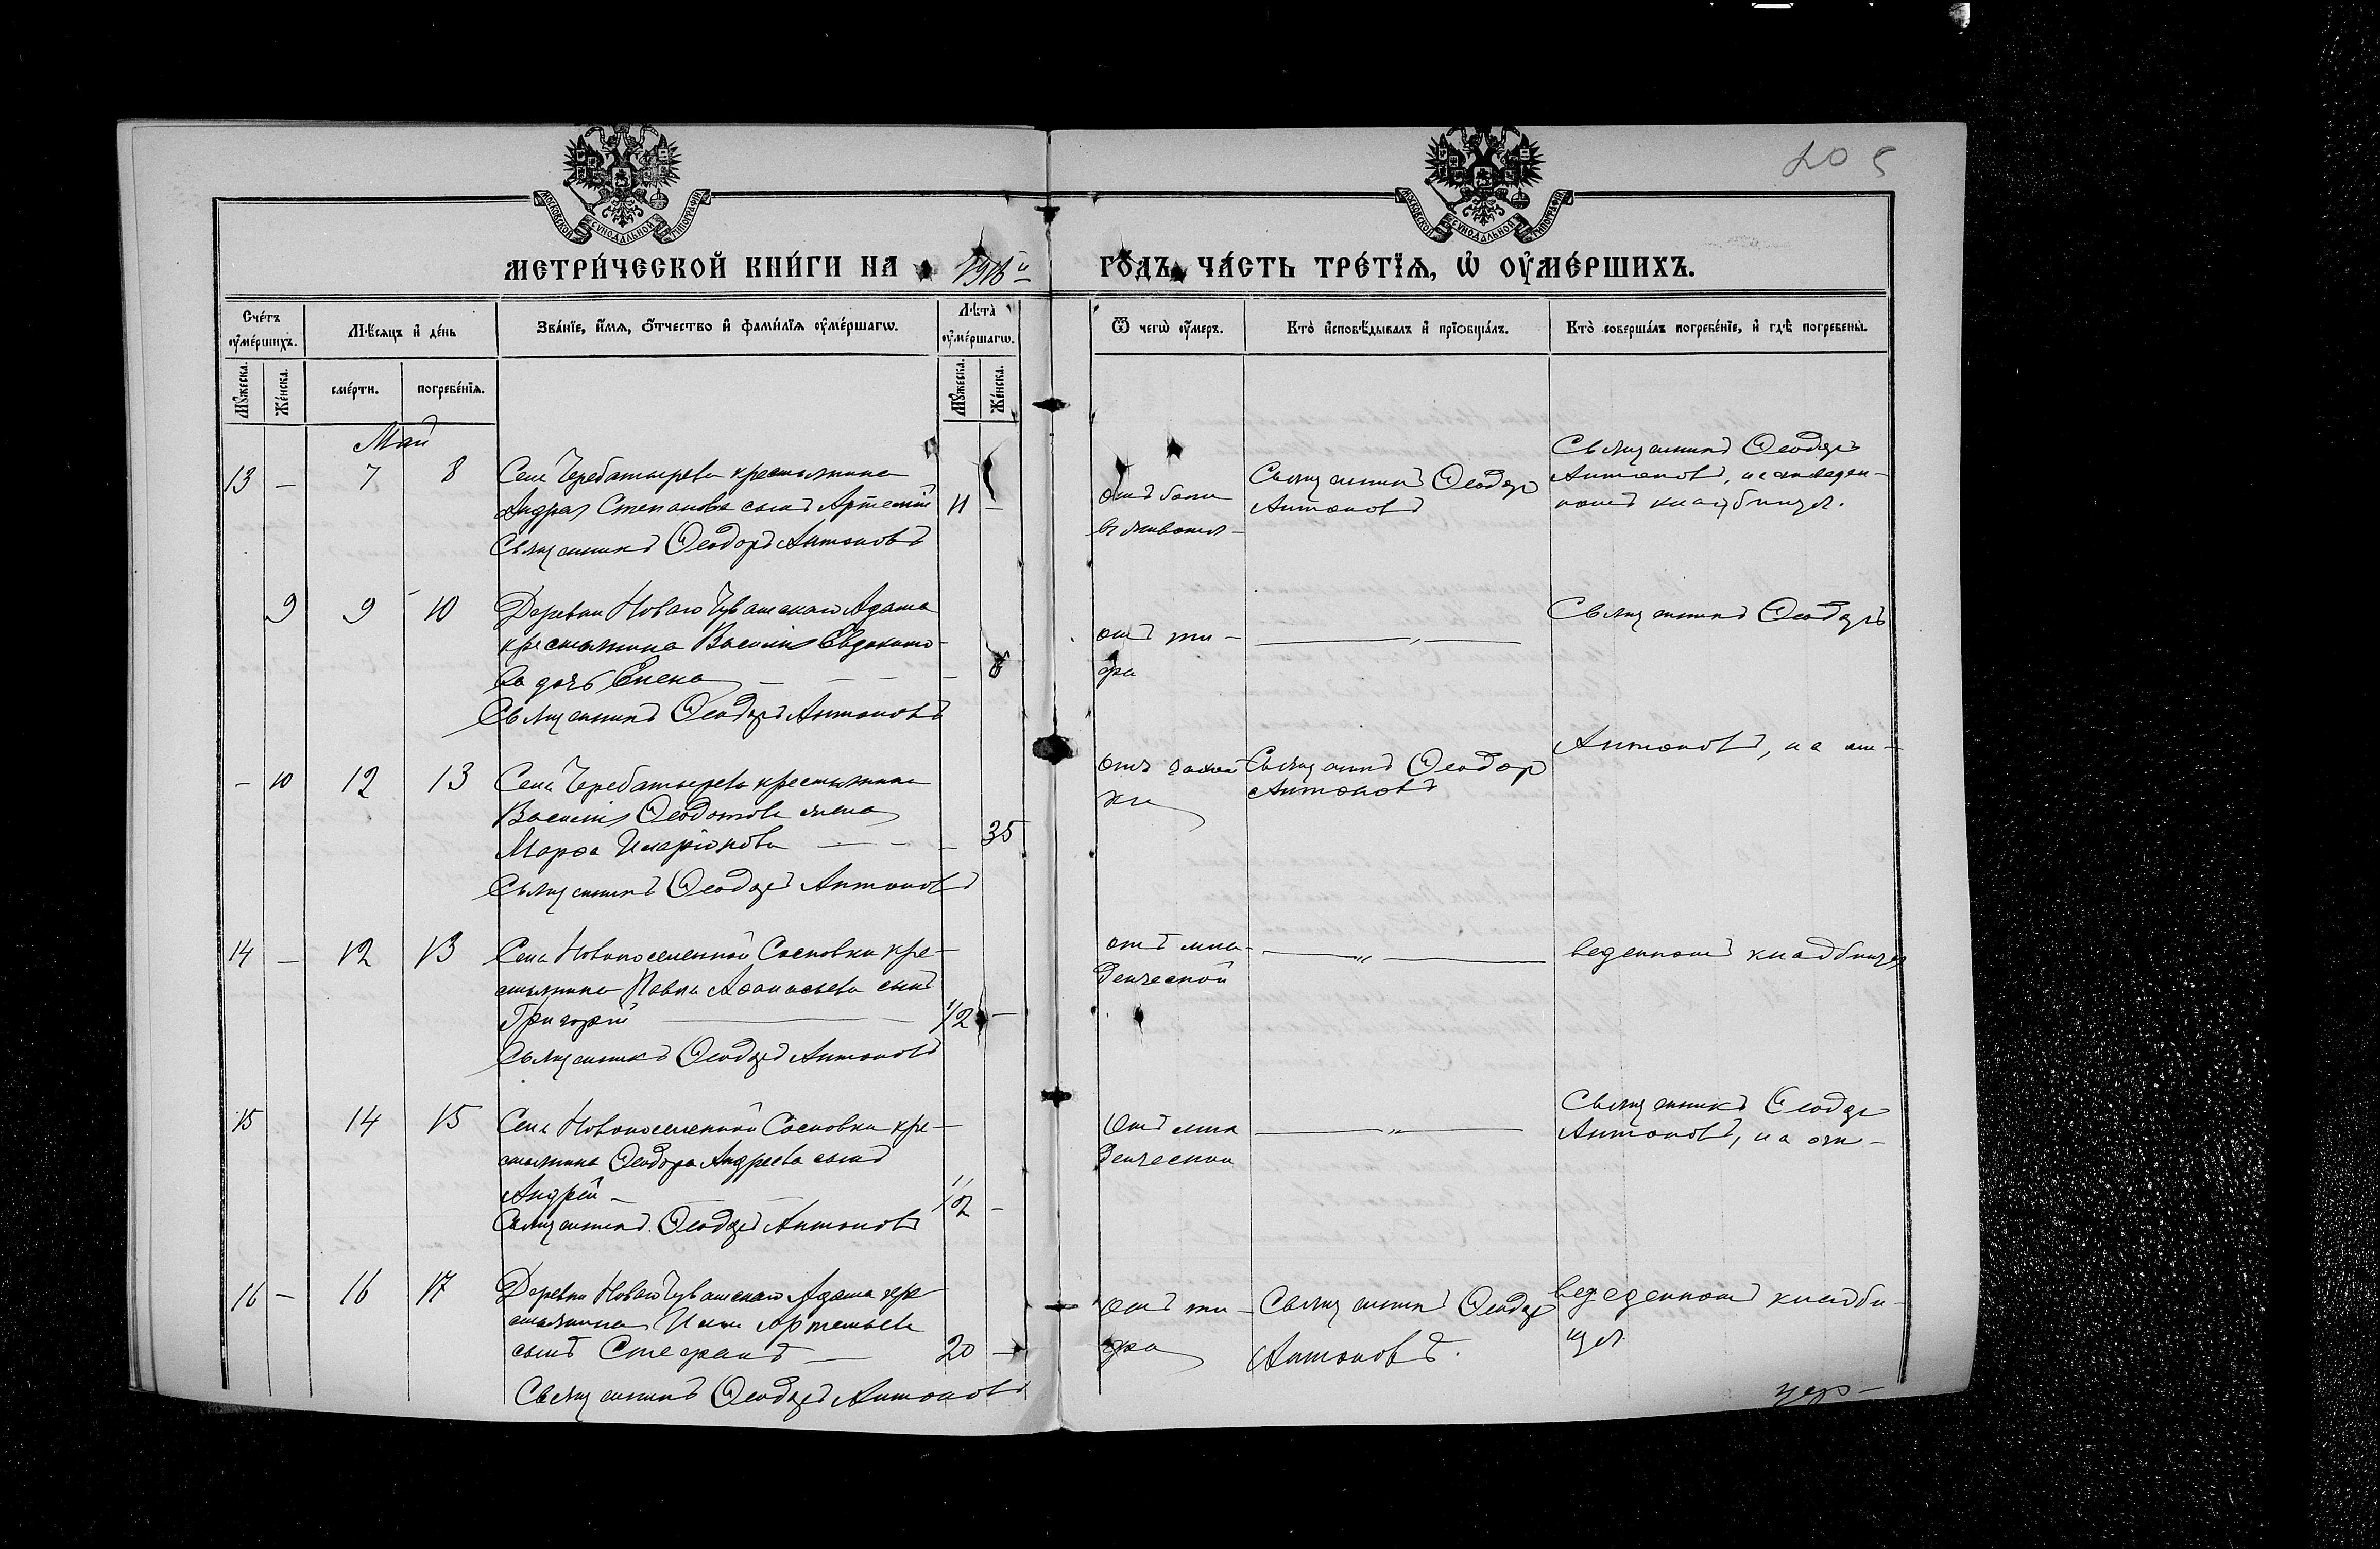 205
МОСКОВСКОЙ СѴНОДАЛЬНОЙ ТИПОГРАФІИ
МОСКОВСКОЙ СѴНОДАЛЬНОЙ ТИПОГРАФІИ
МЕТРИ́ЧЕСКОЙ КНИ́ГИ НА 1918й ГО́ДЪ, ЧА́СТЬ ТРЕ́ТІѦ, Ѡ҆ ОУ҆МЕ́РШИХЪ.
Сче́тъ оу҆ме́ршихъ.
Мѣ́сяцъ и҆ де́нь
Зва́нїе, и҆́мя, ѻ҆́тчество и҆ фами́лїя оу҆ме́ршагѡ.
Лѣта̀ оу҆ме́ршагѡ.
Ѿ чегѡ̀ оу҆́меръ.
Кто̀ и҆сповѣ́дывалъ и҆ прїѡбща́лъ.
Кто̀ соверша́лъ погребе́нїе, и҆ гдѣ̀ погребены̀.
Мꙋ́жеска.
Же́нска.
сме́рти.
погребе́нїя.
Мꙋ́жеска.
Же́нска.
Май
13 — 7 8
Села Черебатырева крестьянина
Андрея Степанова сынъ Артемій 11 —
Священникъ Ѳеодоръ Антоновъ
отъ боли
въ животѣ
Священникъ Ѳеодор
Антоновъ
Священникъ Ѳеодоръ
Антоновъ, на отведен-
номъ кладбищѣ.
9 9 10
Деревни Новаго Чувашскаго Адама
крестьянина Василія Евдокимо-
ва дочь Елена — 8
Священникъ Ѳеодоръ Антоновъ
отъ ти-
фа
— „ —
Священникъ Ѳеодоръ
— 10 12 13
Села Черебатырева крестьянина
Василія Ѳеодотова жена
Марѳа Иларіонова — 35
Священникъ Ѳеодоръ Антоновъ
отъ чахот
ки
Священникъ Ѳеодор
Антоновъ
Антоновъ, на от-
14 — 12 13
Села Новопоселенной Сосновки кре-
стьянина Павла Аѳанасьева сынъ
Григорій — 1/2 —
Священникъ Ѳеодоръ Антоновъ
отъ мла-
денческой
— „ —
веденномъ кладбищѣ
15 14 15
Села Новопоселенной Сосновки кре-
стьянина Ѳеодора Андреева сынъ
Андрей — 1/2 —
Священникъ Ѳеодоръ Антоновъ
Отъ мла
денческой
— „ —
Священникъ Ѳеодоръ
Антоновъ, на от-
16 — 16 17
Деревни Новаго Чувашскаго Адама кре-
стьянина Артемьева
сынъ Стефанъ — 20 —
Священникъ Ѳеодоръ Антоновъ
Отъ ти-
фа
Священникъ Ѳеодор
Антоновъ.
веденномъ кладби-
щѣ.